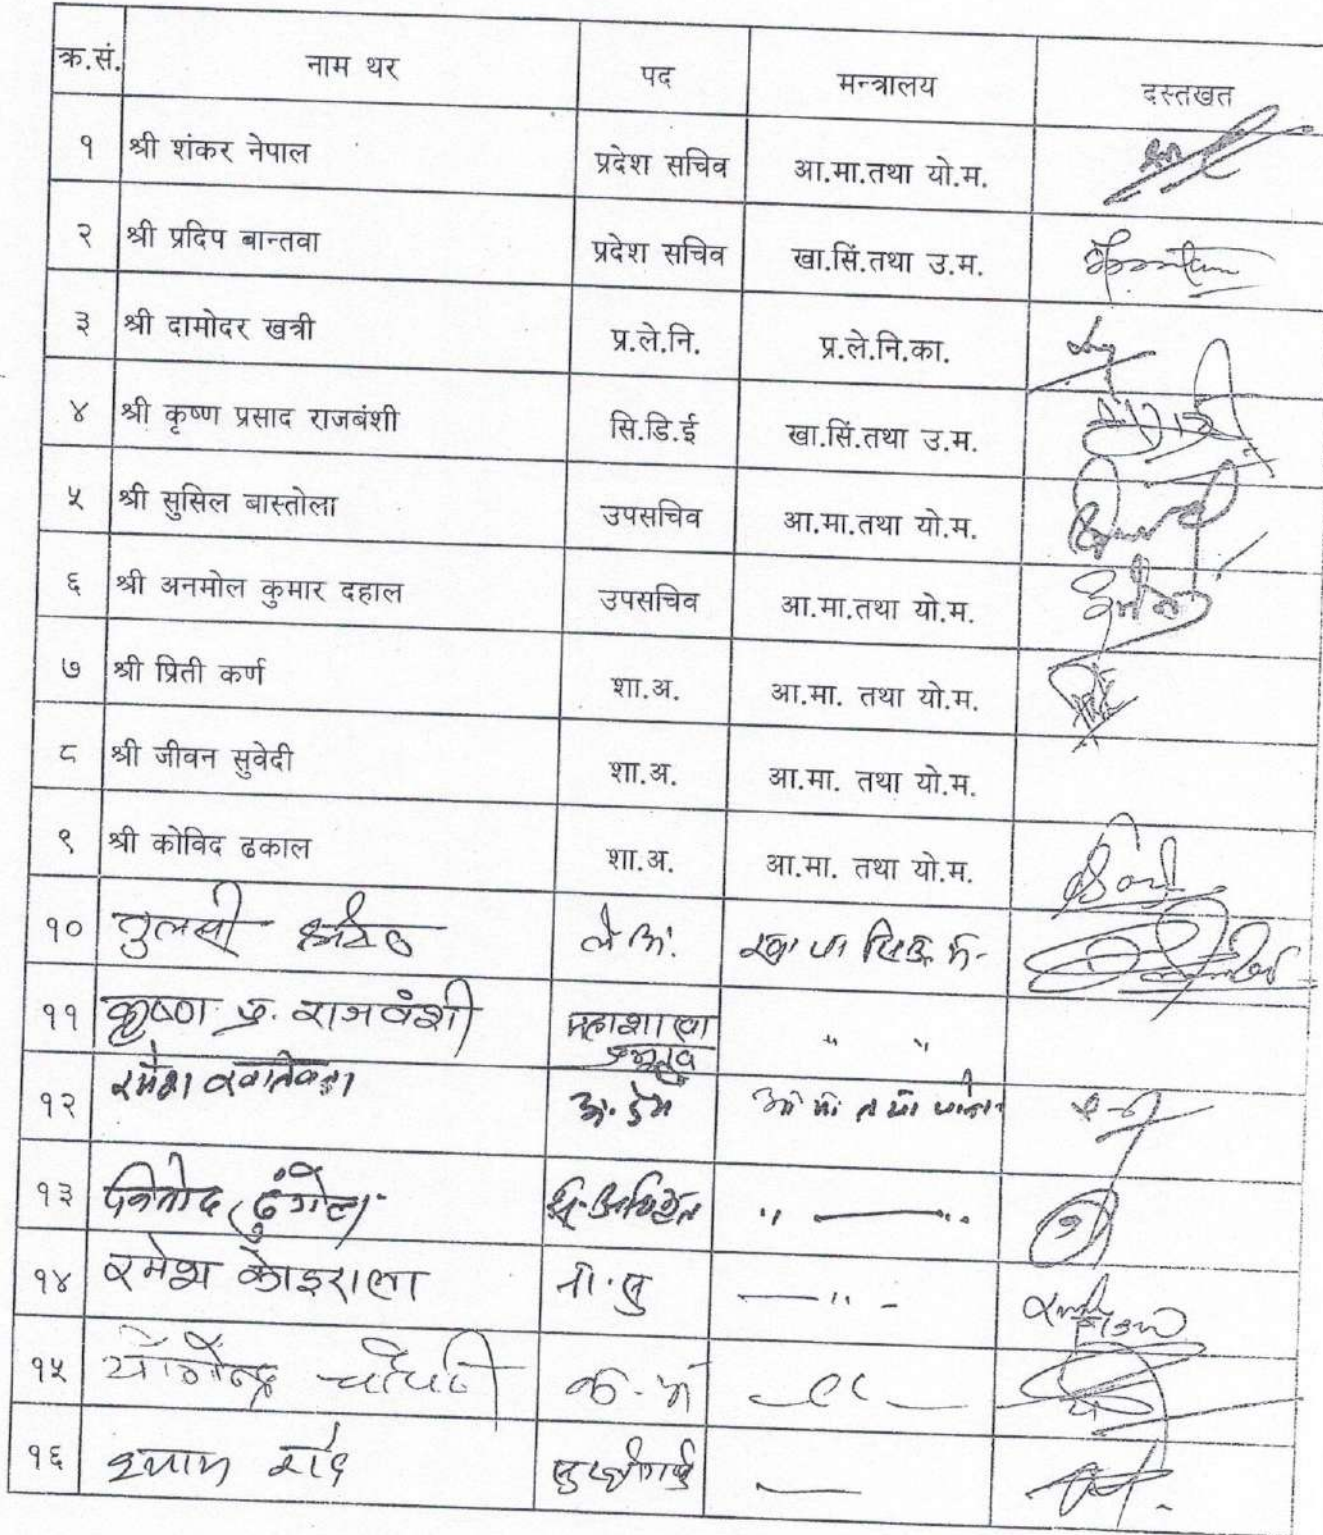 क्र.सं. नाम थर पद मन्त्रालय दस्तखत
१ श्री शंकर नेपाल प्रदेश सचिव आ.मा.तथा यो.म.
२ श्री प्रदिप बान्तवा प्रदेश सचिव खा.सिं.तथा उ.म.
३ श्री दामोदर खत्री प्र.ले.नि. प्र.ले.नि.का.
४ श्री कृष्ण प्रसाद राजबंशी सि.डि.ई खा.सिं.तथा उ.म.
५ श्री सुसिल बास्तोला उपसचिव आ.मा.तथा यो.म.
६ श्री अनमोल कुमार दहाल उपसचिव आ.मा.तथा यो.म.
७ श्री प्रिती कर्ण शा.अ. आ.मा. तथा यो.म.
८ श्री जीवन सुवेदी शा.अ. आ.मा. तथा यो.म.
९ श्री कोविद ढकाल शा.अ. आ.मा. तथा यो.म.
१० तुलसी ले.अ.
११ कृष्ण प्र. राजवंशी महाशाखा
प्रमुख " "
१२ रमेश
१३ विनोद ढुंगेल
१४ रमेश कोइराला ना.सु — " -
१५ योगेन्द्र चौधरी
१६ श्याम